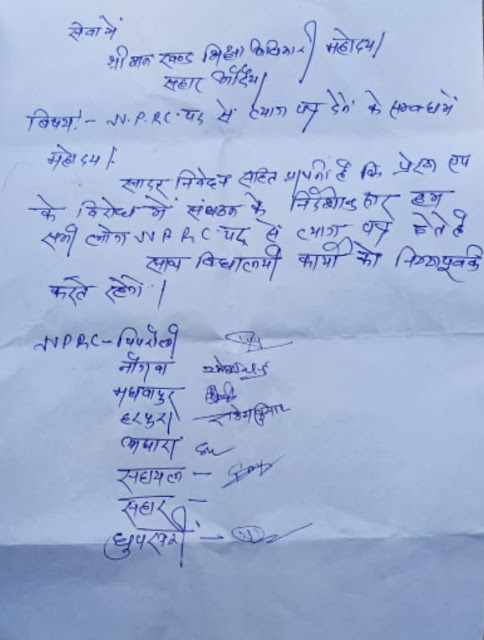 सेवा में
श्रीमान खण्ड शिक्षा अधिकारी महोदय।
सहार औरैया।
विषय:- N.P.R.C. पद से त्याग पत्र देने के सम्बन्ध में
महोदय।
सादर निवेदन सहित प्रार्थना है कि प्रेरणा एप
के विरोध में संगठन के निर्देशानुसार हम
सभी लोग N P R C पद से त्याग पत्र देते है
साथ विद्यालयी कार्यो को निष्ठापूर्वक
करते रहेंगे।
NPRC- पिपरौली
नौगवा
मधवापुर
हरपुरा - राजेशकुमार
सहायल -
सहार -
धुपखरी -